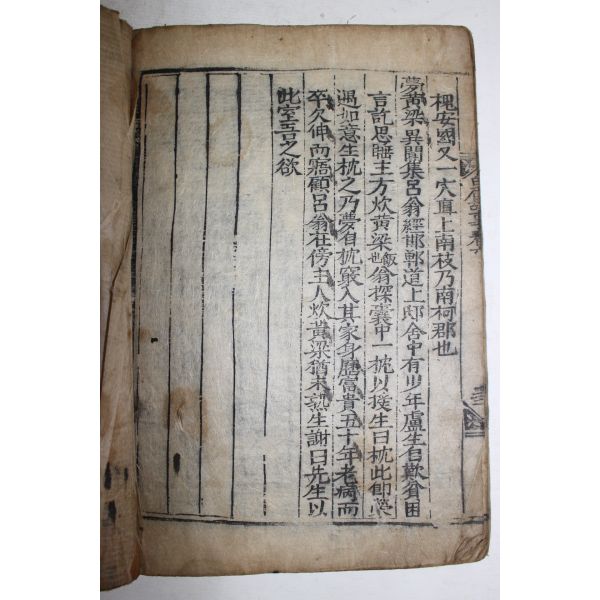 槐安國又一穴直上南枝乃南柯郡也
夢黃梁異聞集呂翁經邯鄲道上邸舍中有少年盧生自歎貧困
言訖思睡主方炊黃梁也飯翁探囊中一枕以授生曰枕此即榮
遇如意生枕之乃夢自枕竅入其家身歷富貴五十年老病而
卒欠伸而寤顧呂翁在傍主人炊黃梁猶未熟生謝曰先生以
此窒吾之欲